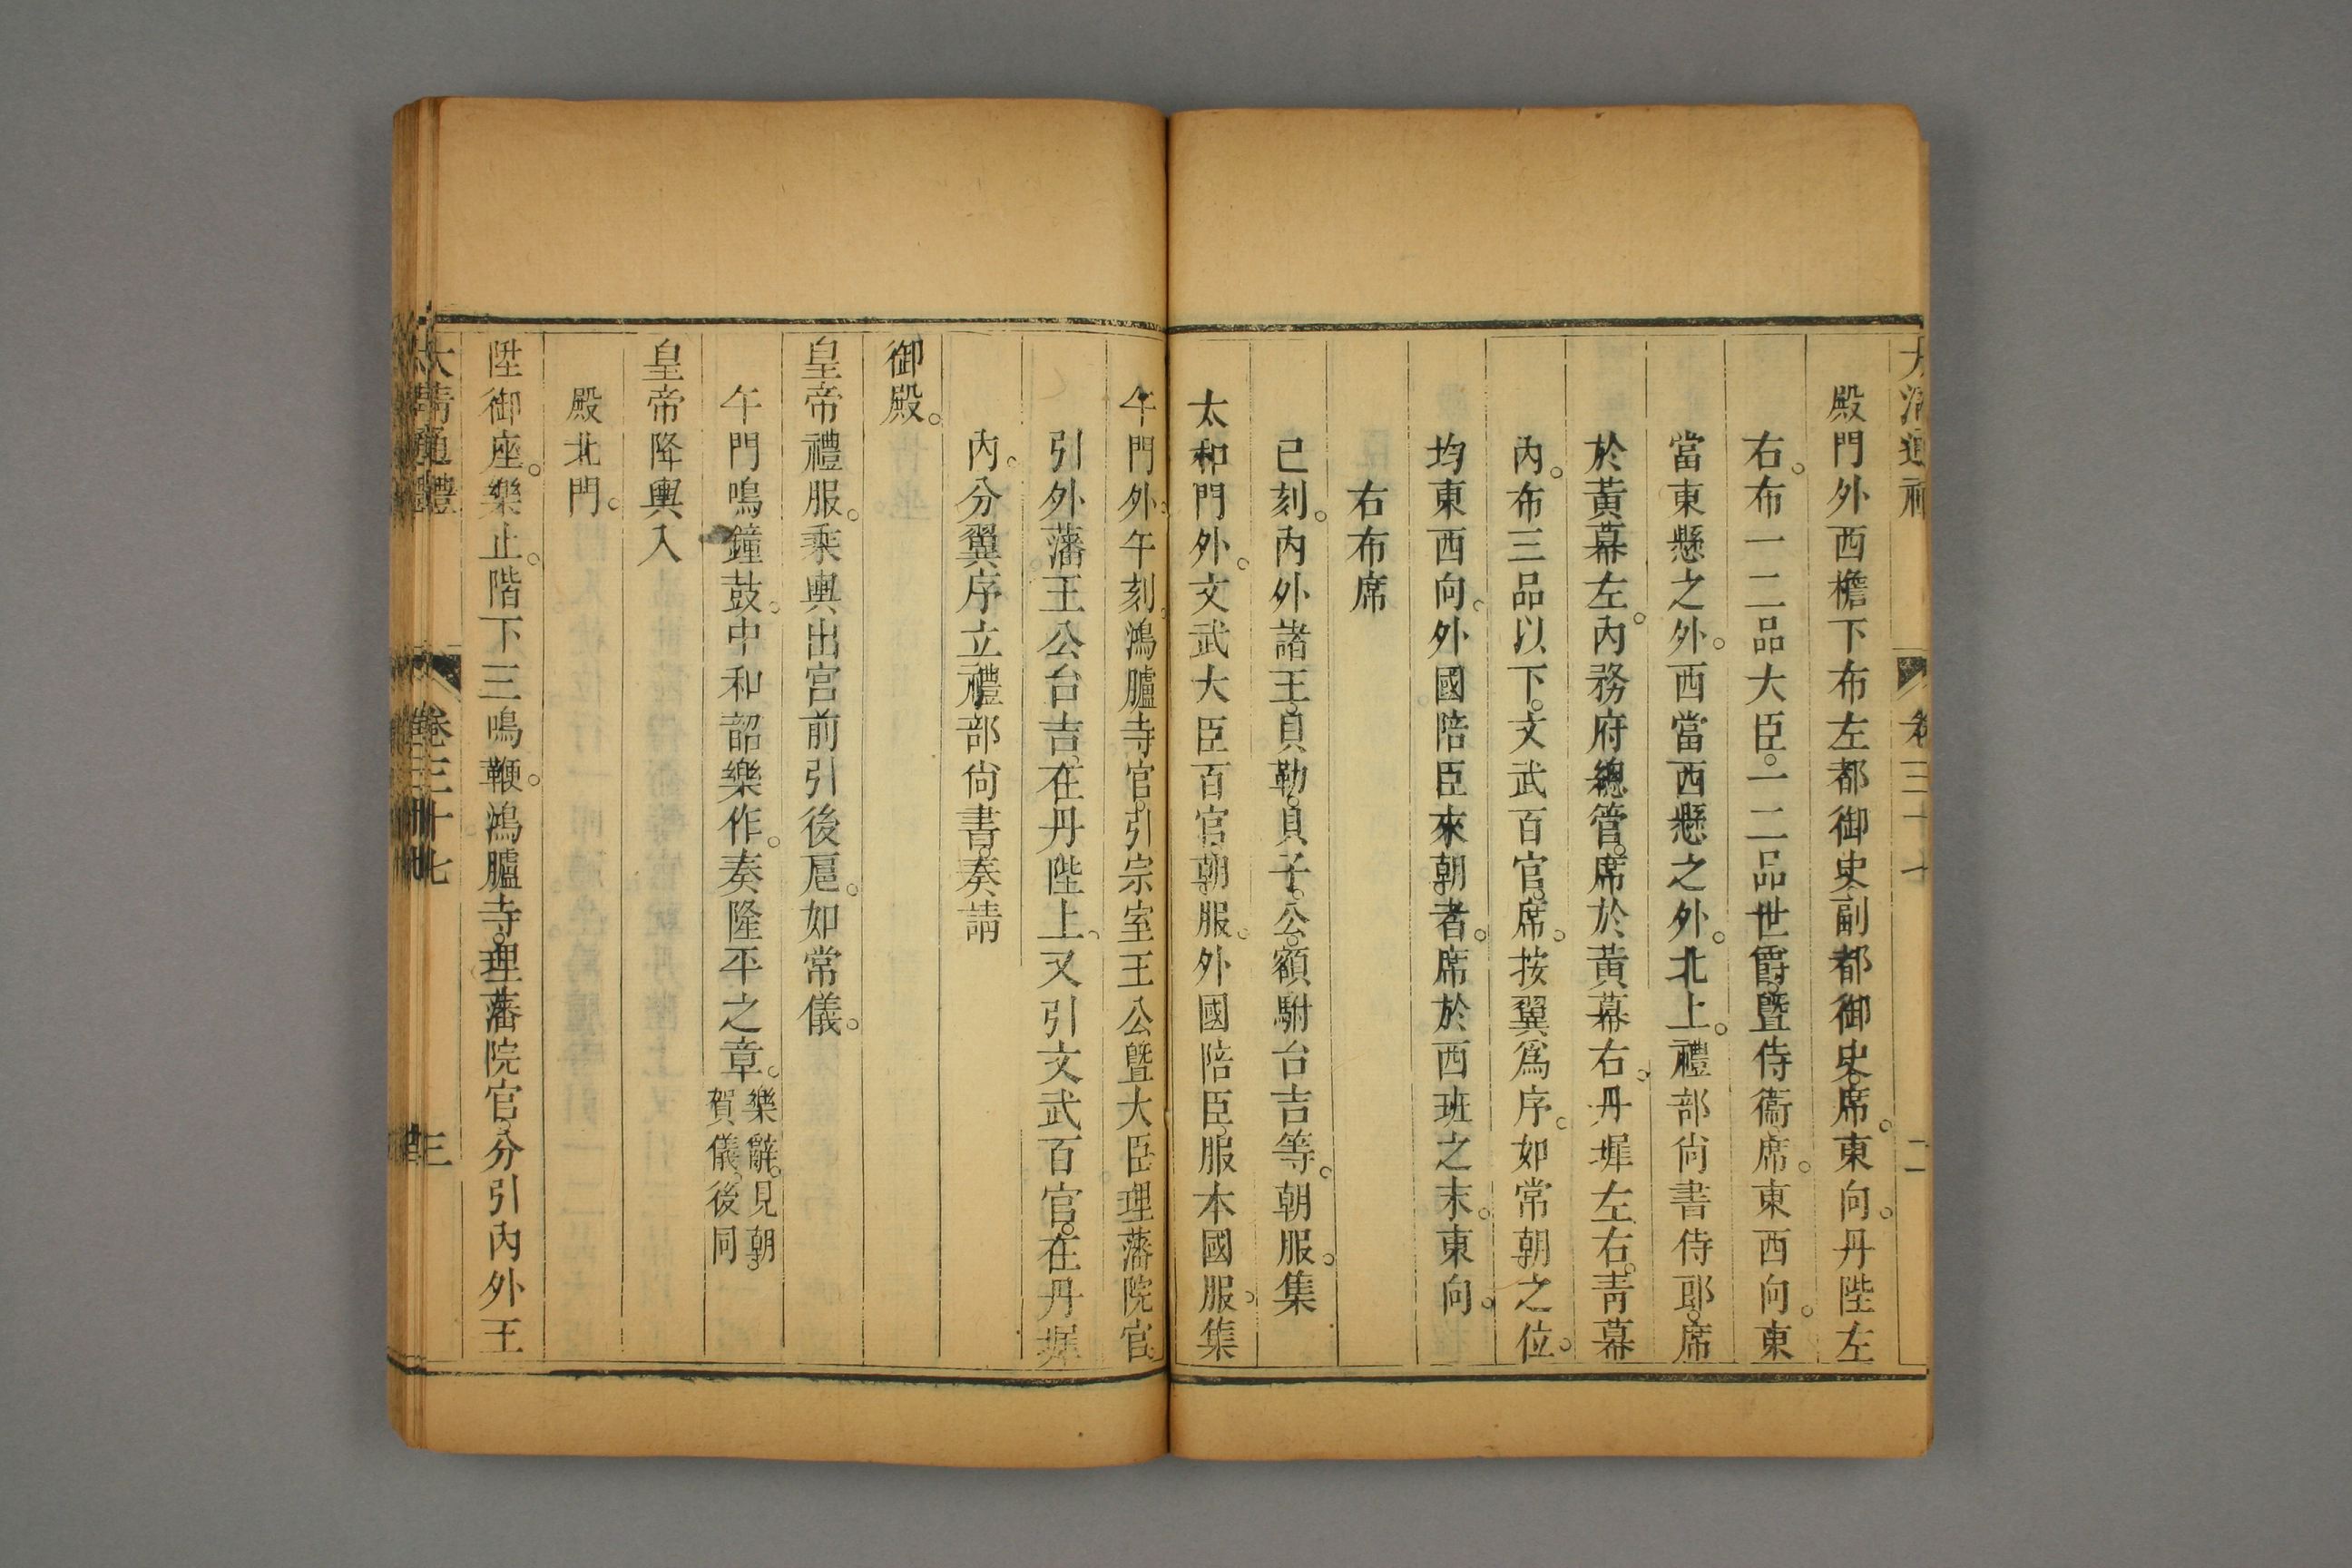 大清通禮 卷三十七 二
殿門外西檐下布左都御史副都御史席。東向。丹陛左
右。布一二品大臣。一二品世爵。暨侍衞席。東西向。東
當東懸之外。西當西懸之外。北上。禮部尙書侍郎。席
於黃幕左。內務府總管。席於黃幕右。丹墀左右。靑幕
內。布三品以下。文武百官。席。按翼爲序。如常朝之位。
均東西向。外國陪臣來朝者。席於西班之末。東向。
右布席
巳刻。內外諸王。貝勒。貝子。公。額駙台吉等。朝服。集
太和門外。文武大臣百官。朝服。外國陪臣。服本國服。集
午門外。午刻。鴻臚寺官。引宗室王公暨大臣理藩院官
引外藩王公台吉。在丹陛上。又引文武百官。在丹墀
內。分翼序立禮部尙書。奏請
御殿。
皇帝禮服。乘輿出宮前引後扈。如常儀。
午門鳴鐘鼓。中和韶樂作。奏隆平之章。樂辭。見朝。賀儀。後同
皇帝降輿入
殿北門。
陞御座。樂止。階下三鳴鞭。鴻臚寺。理藩院官。分引內外王
大淸通禮 卷三十七 三